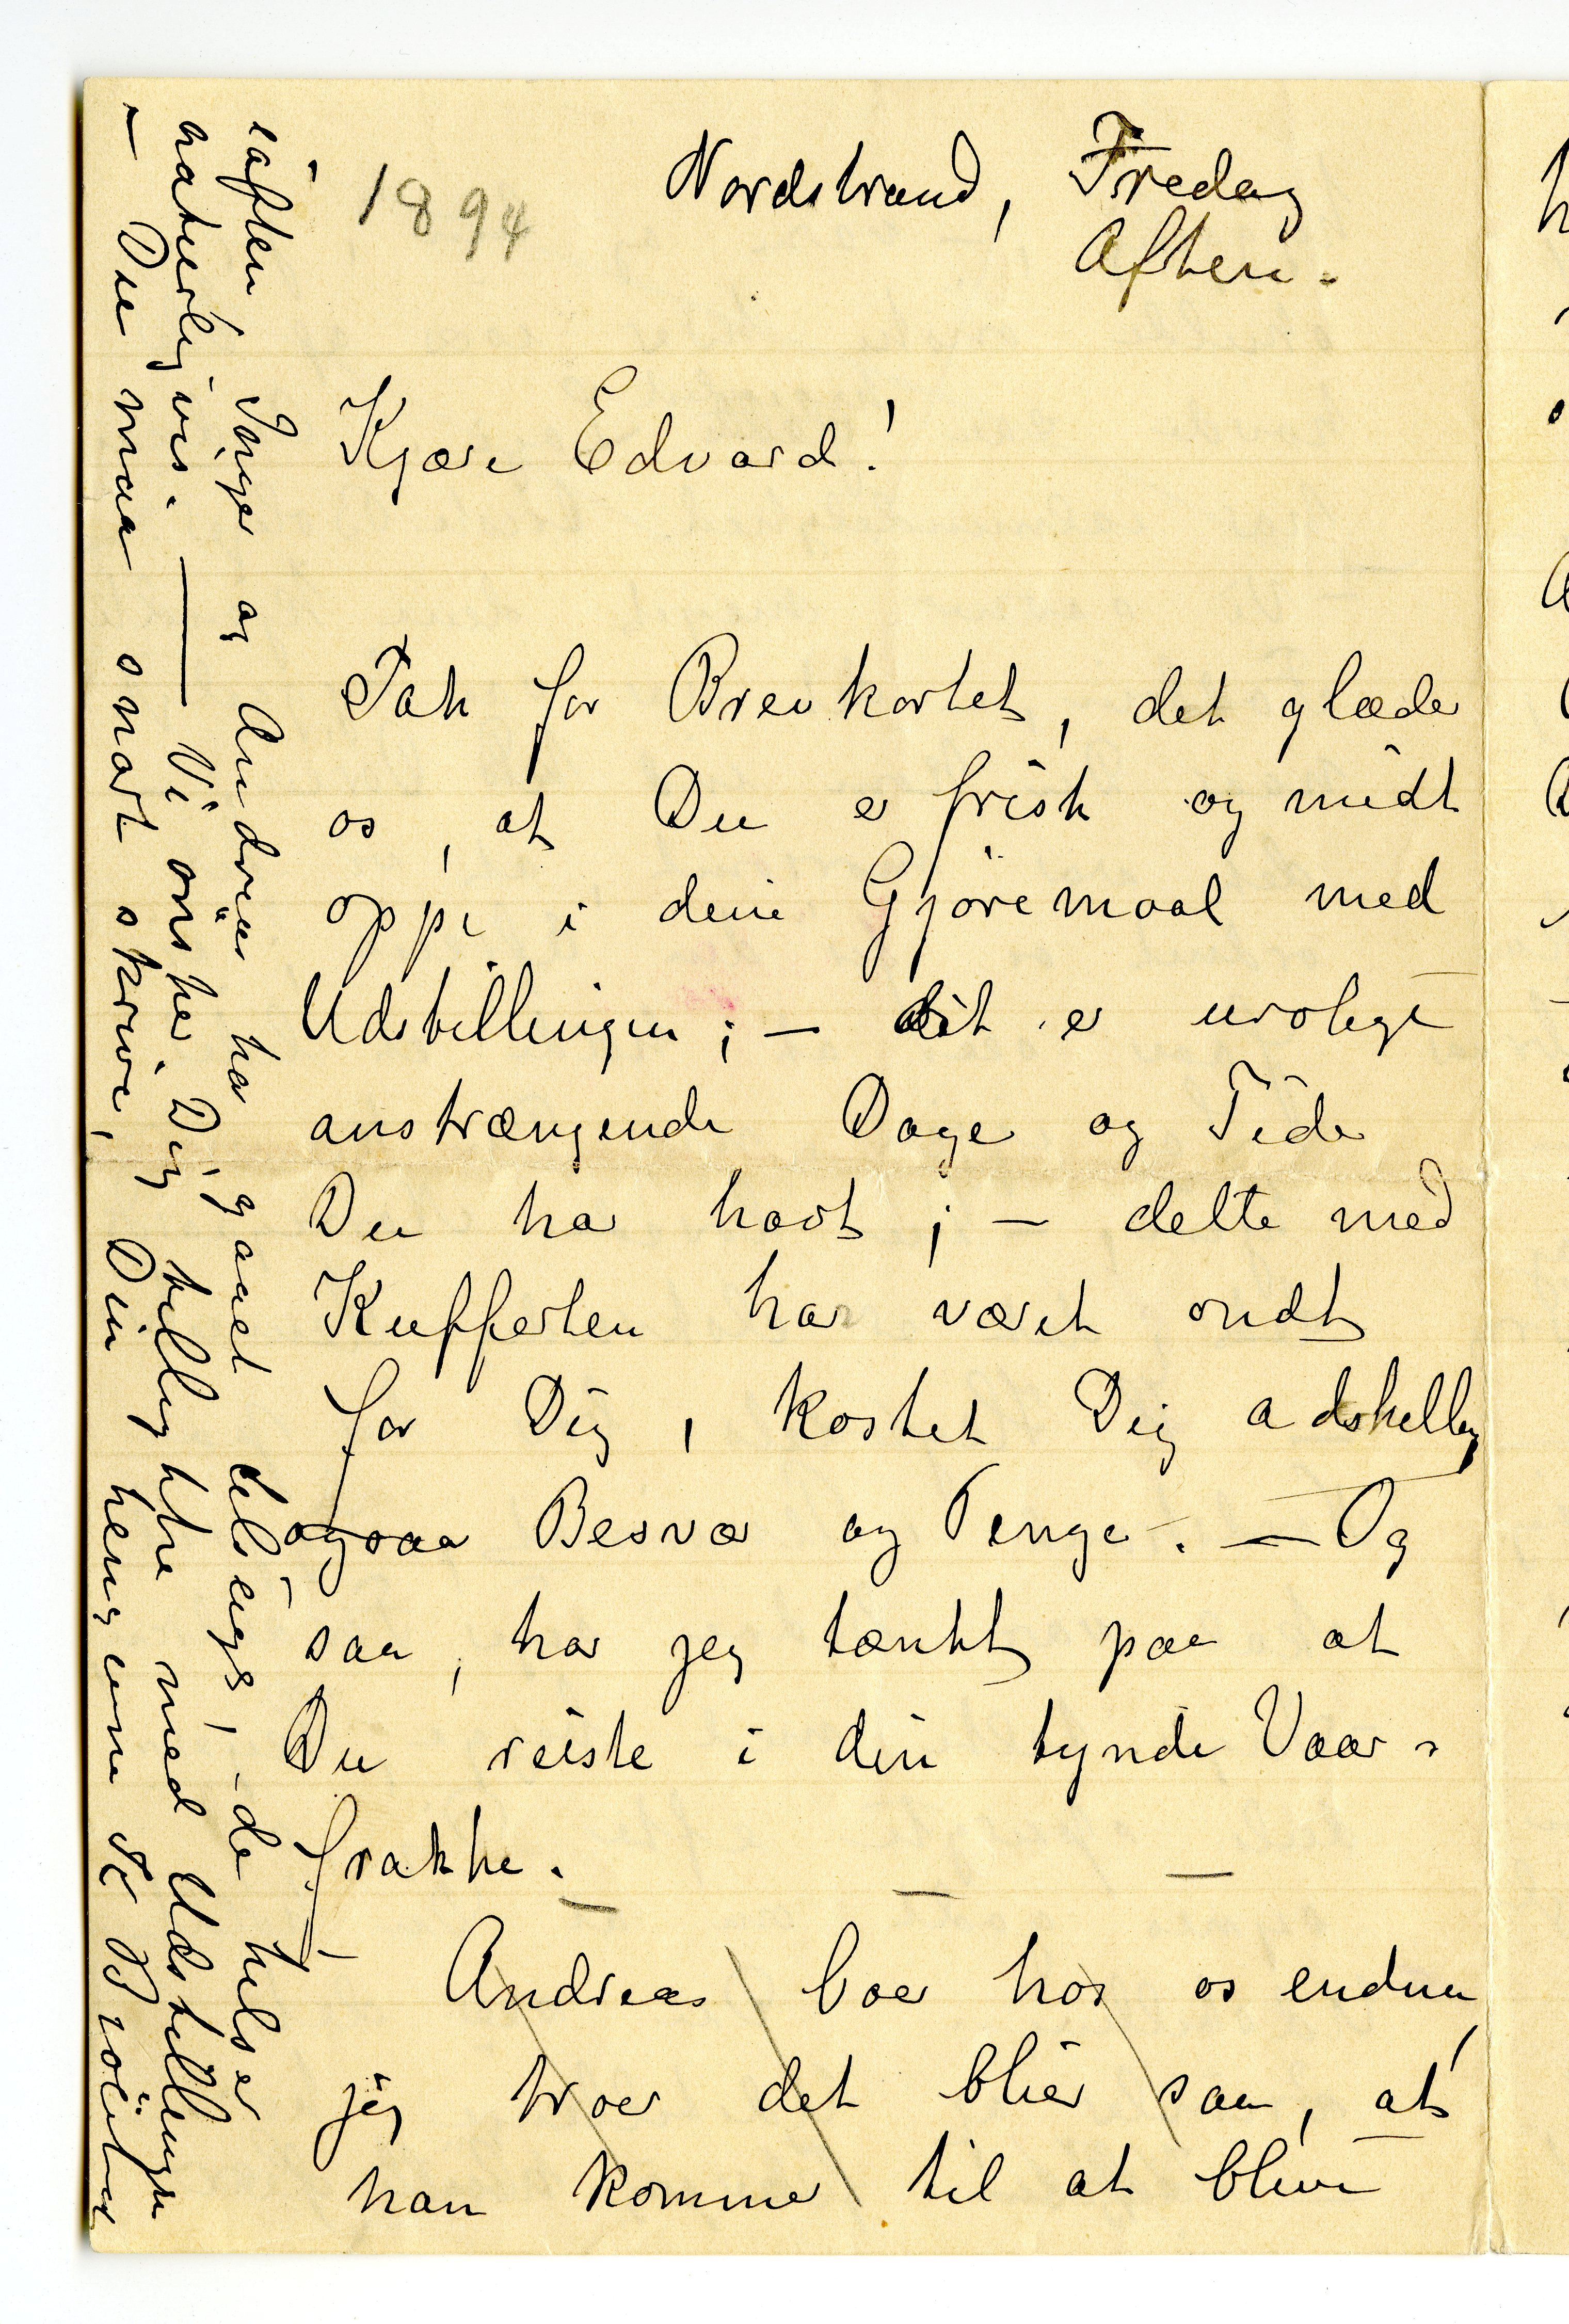 1894
Nordstrand, Fredag
Aften.
Kjære Edvard!
Tak for Brevkortet, det glæder
os, at Du er frisk og midt
oppe i dine Gjøremaal med
Udstillingen; — det er urolige
anstrængende Dage og Tider
Du har havt; — dette med
Kufferten har været ondt
for Dig, kostet Dig adskillig
ogsaa Besvær og Penge. — Og
saa, har jeg tænkt paa at
Du reiste i din tynde Vaar-
frakke. —
Andreas boer hos os endnu,
jeg troer det blier saa, at
han kommer til at blive
iaften Inger og Andreas har gaaet tilsengs, - de hilser
naturligvis. — Vi ønsker Dig tillykke med Udstillingen
— Du maa snart skrive, Din hengivne K Bjölstad